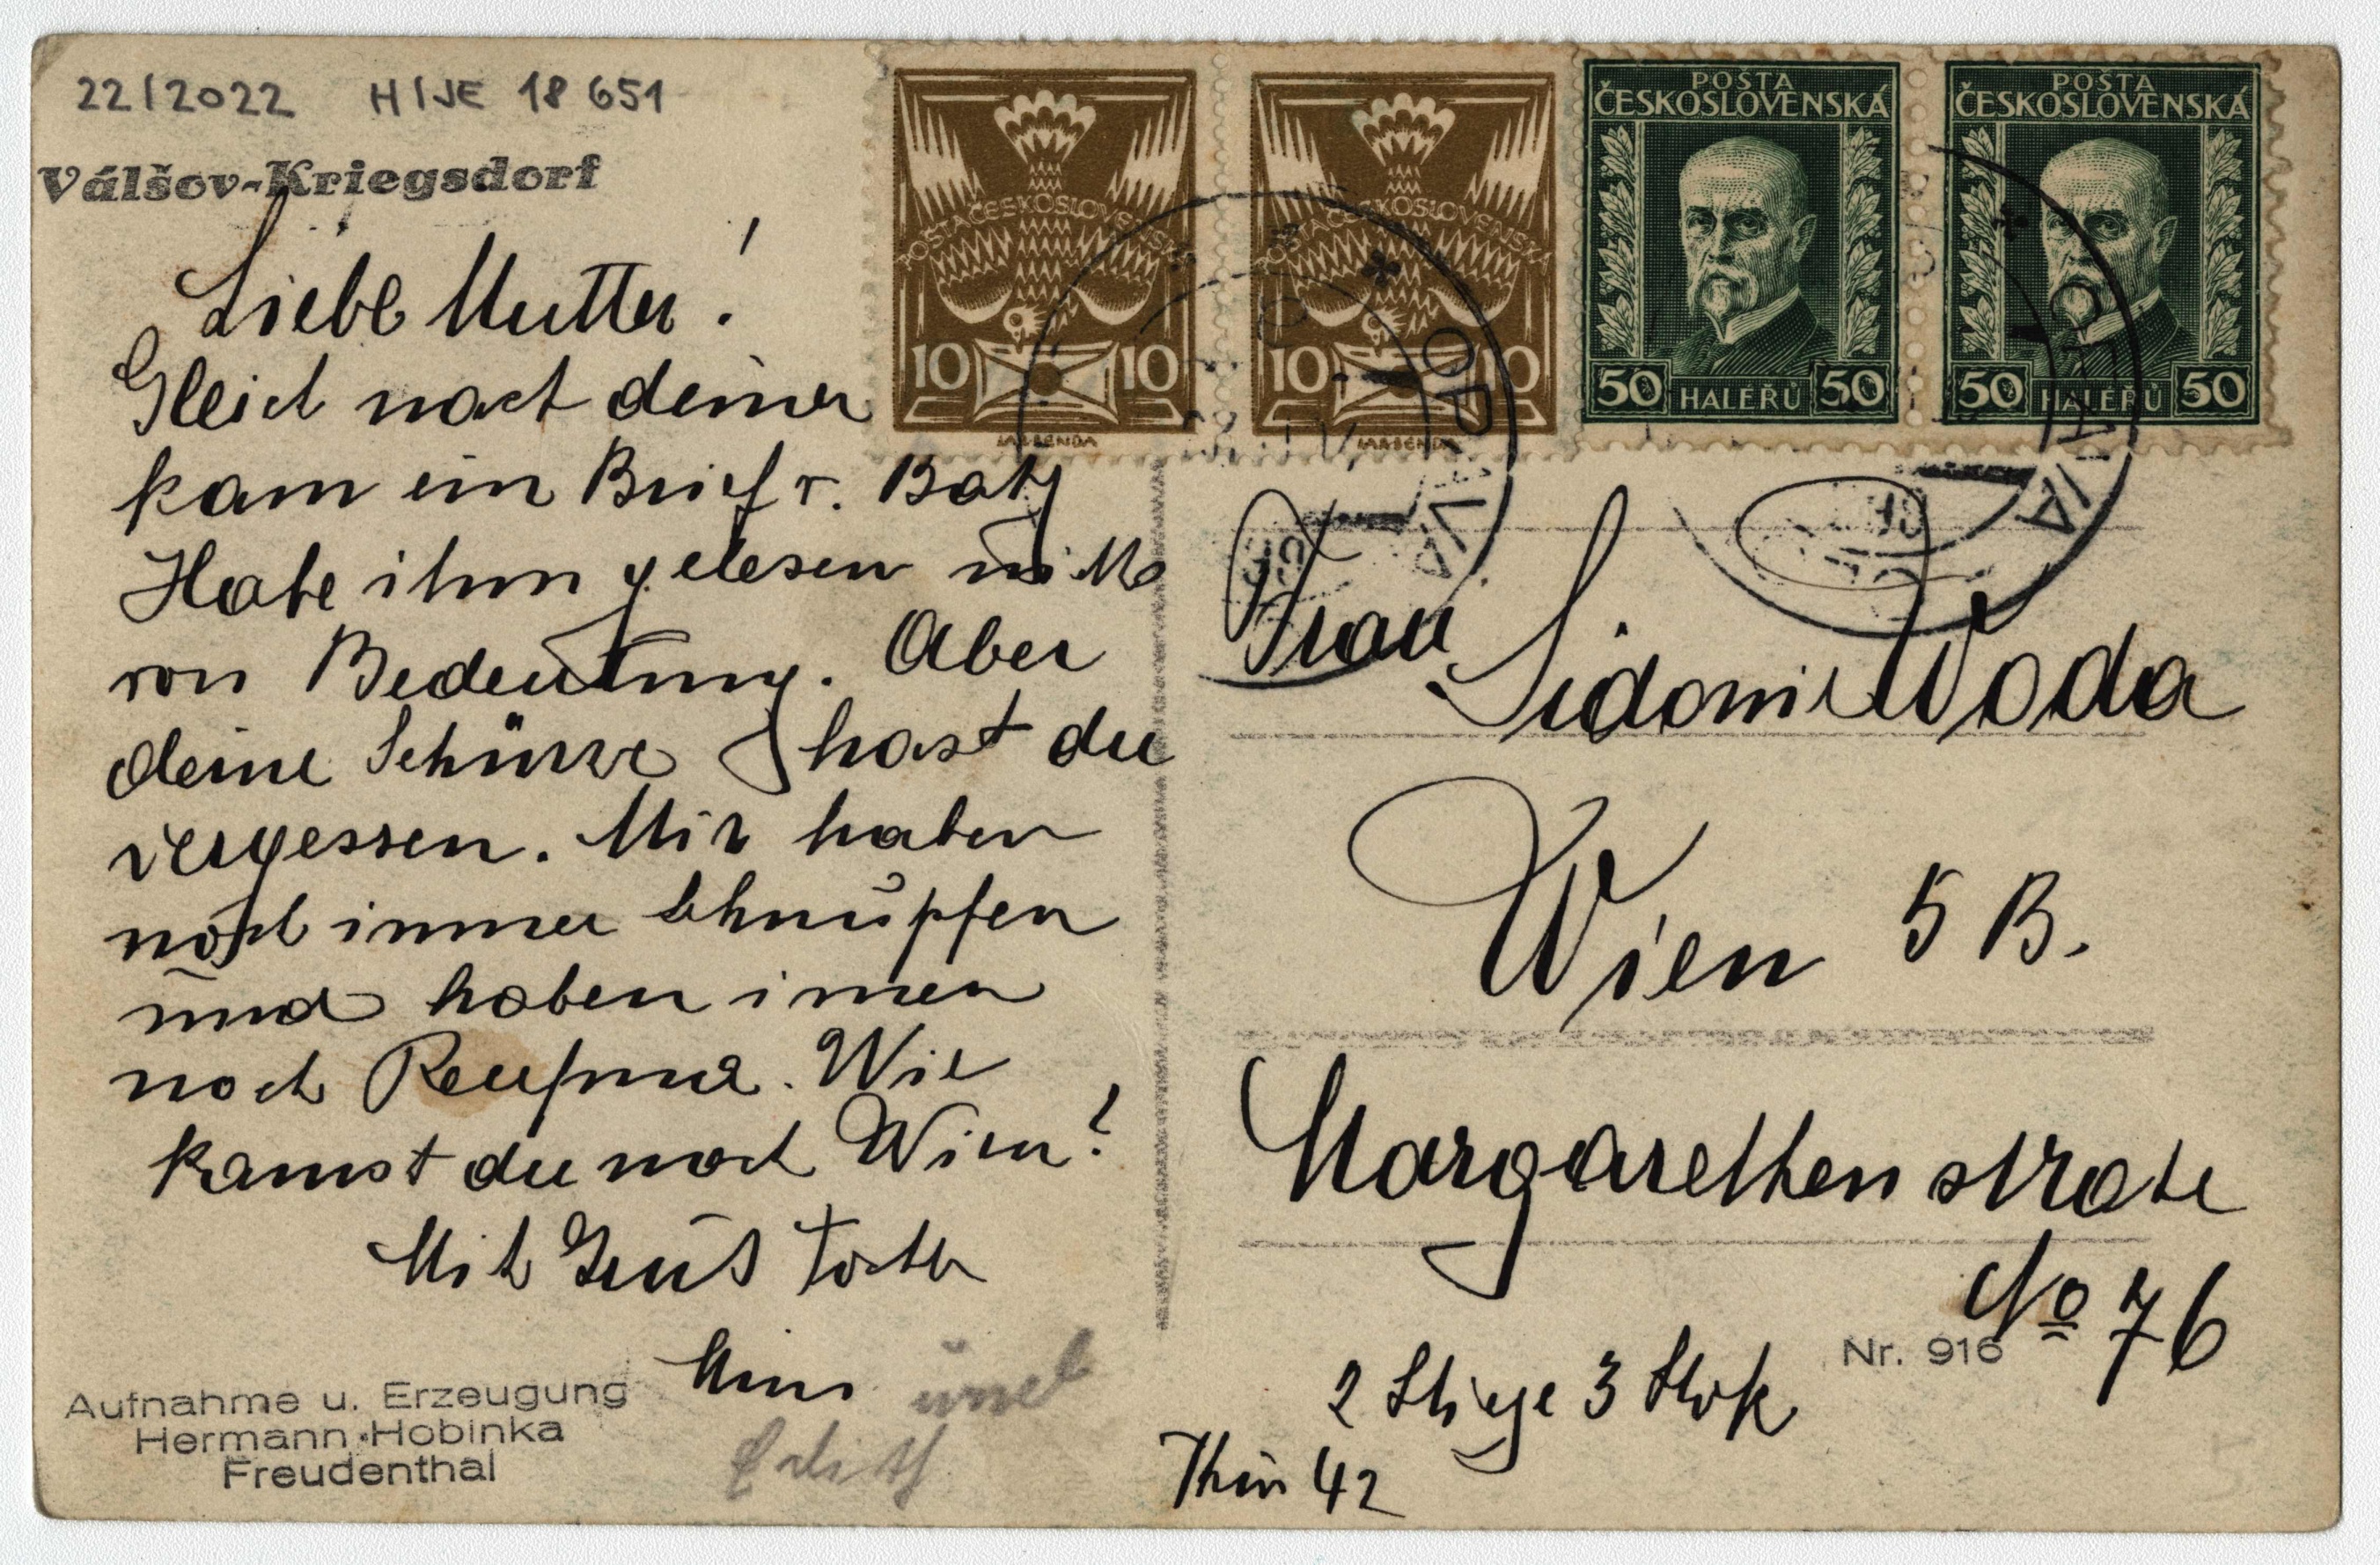 22/2022 H/JE 18 651
Válšov-Kriegsdorf
Liebe Mutter!
Gleich nach deiner
kam ein Brief v. Baty
Habe ihm gelesen nicht
von Bedeutung. Aber
deine Schürze hast du
vergessen. Mir haben
noch immer Schnupfen
und haben immer
noch Reuhma. Wie
kamst du nach Wien?
Mit Gruß Tochter
Mimi und
Edith
Aufnahme u. Erzeugung
Hermann Hobinka
Freudenthal
POŠTA ČESKOSLOVENSKÁ
10 10
POŠTA ČESKOSLOVENSKÁ
10 10
POŠTA
ČESKOSLOVENSKÁ
50 HALÉŘŮ 50
POŠTA
ČESKOSLOVENSKÁ
50 HALÉŘŮ 50
OPAVA
OPAVA
Frau Sidonie Woda
Wien 5 B.
Margarethenstrate
No 76
Nr. 916
2 Stiege 3 Stok
Thür 42